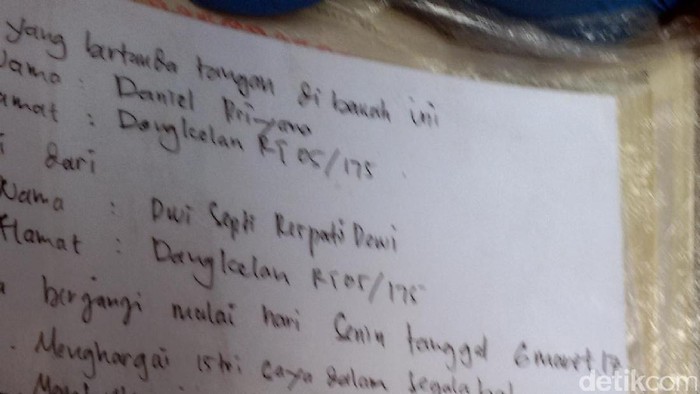 yang bertanda tangan di bawah ini
Nama : Daniel Priyono
amat : Dongkelan RT 05/175
i dari
Nama : Dwi Septi Rerpati Dewi
Alamat : Dangkelan RT 05/175
a berjangi mulai hari Senin tanggal 6 maret 17
. Menghargai istri saya dalam segala hal
detikcom